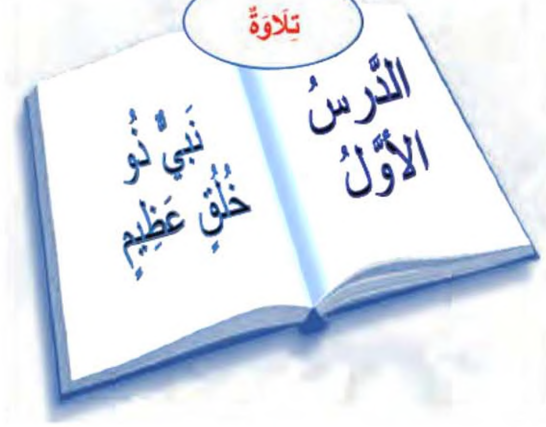 تِلَاوَةٌ
الدَّرسُ
الأَوَّلُ
نَبيٌّ ذُو
خُلُقٍ عَظِيمٍ